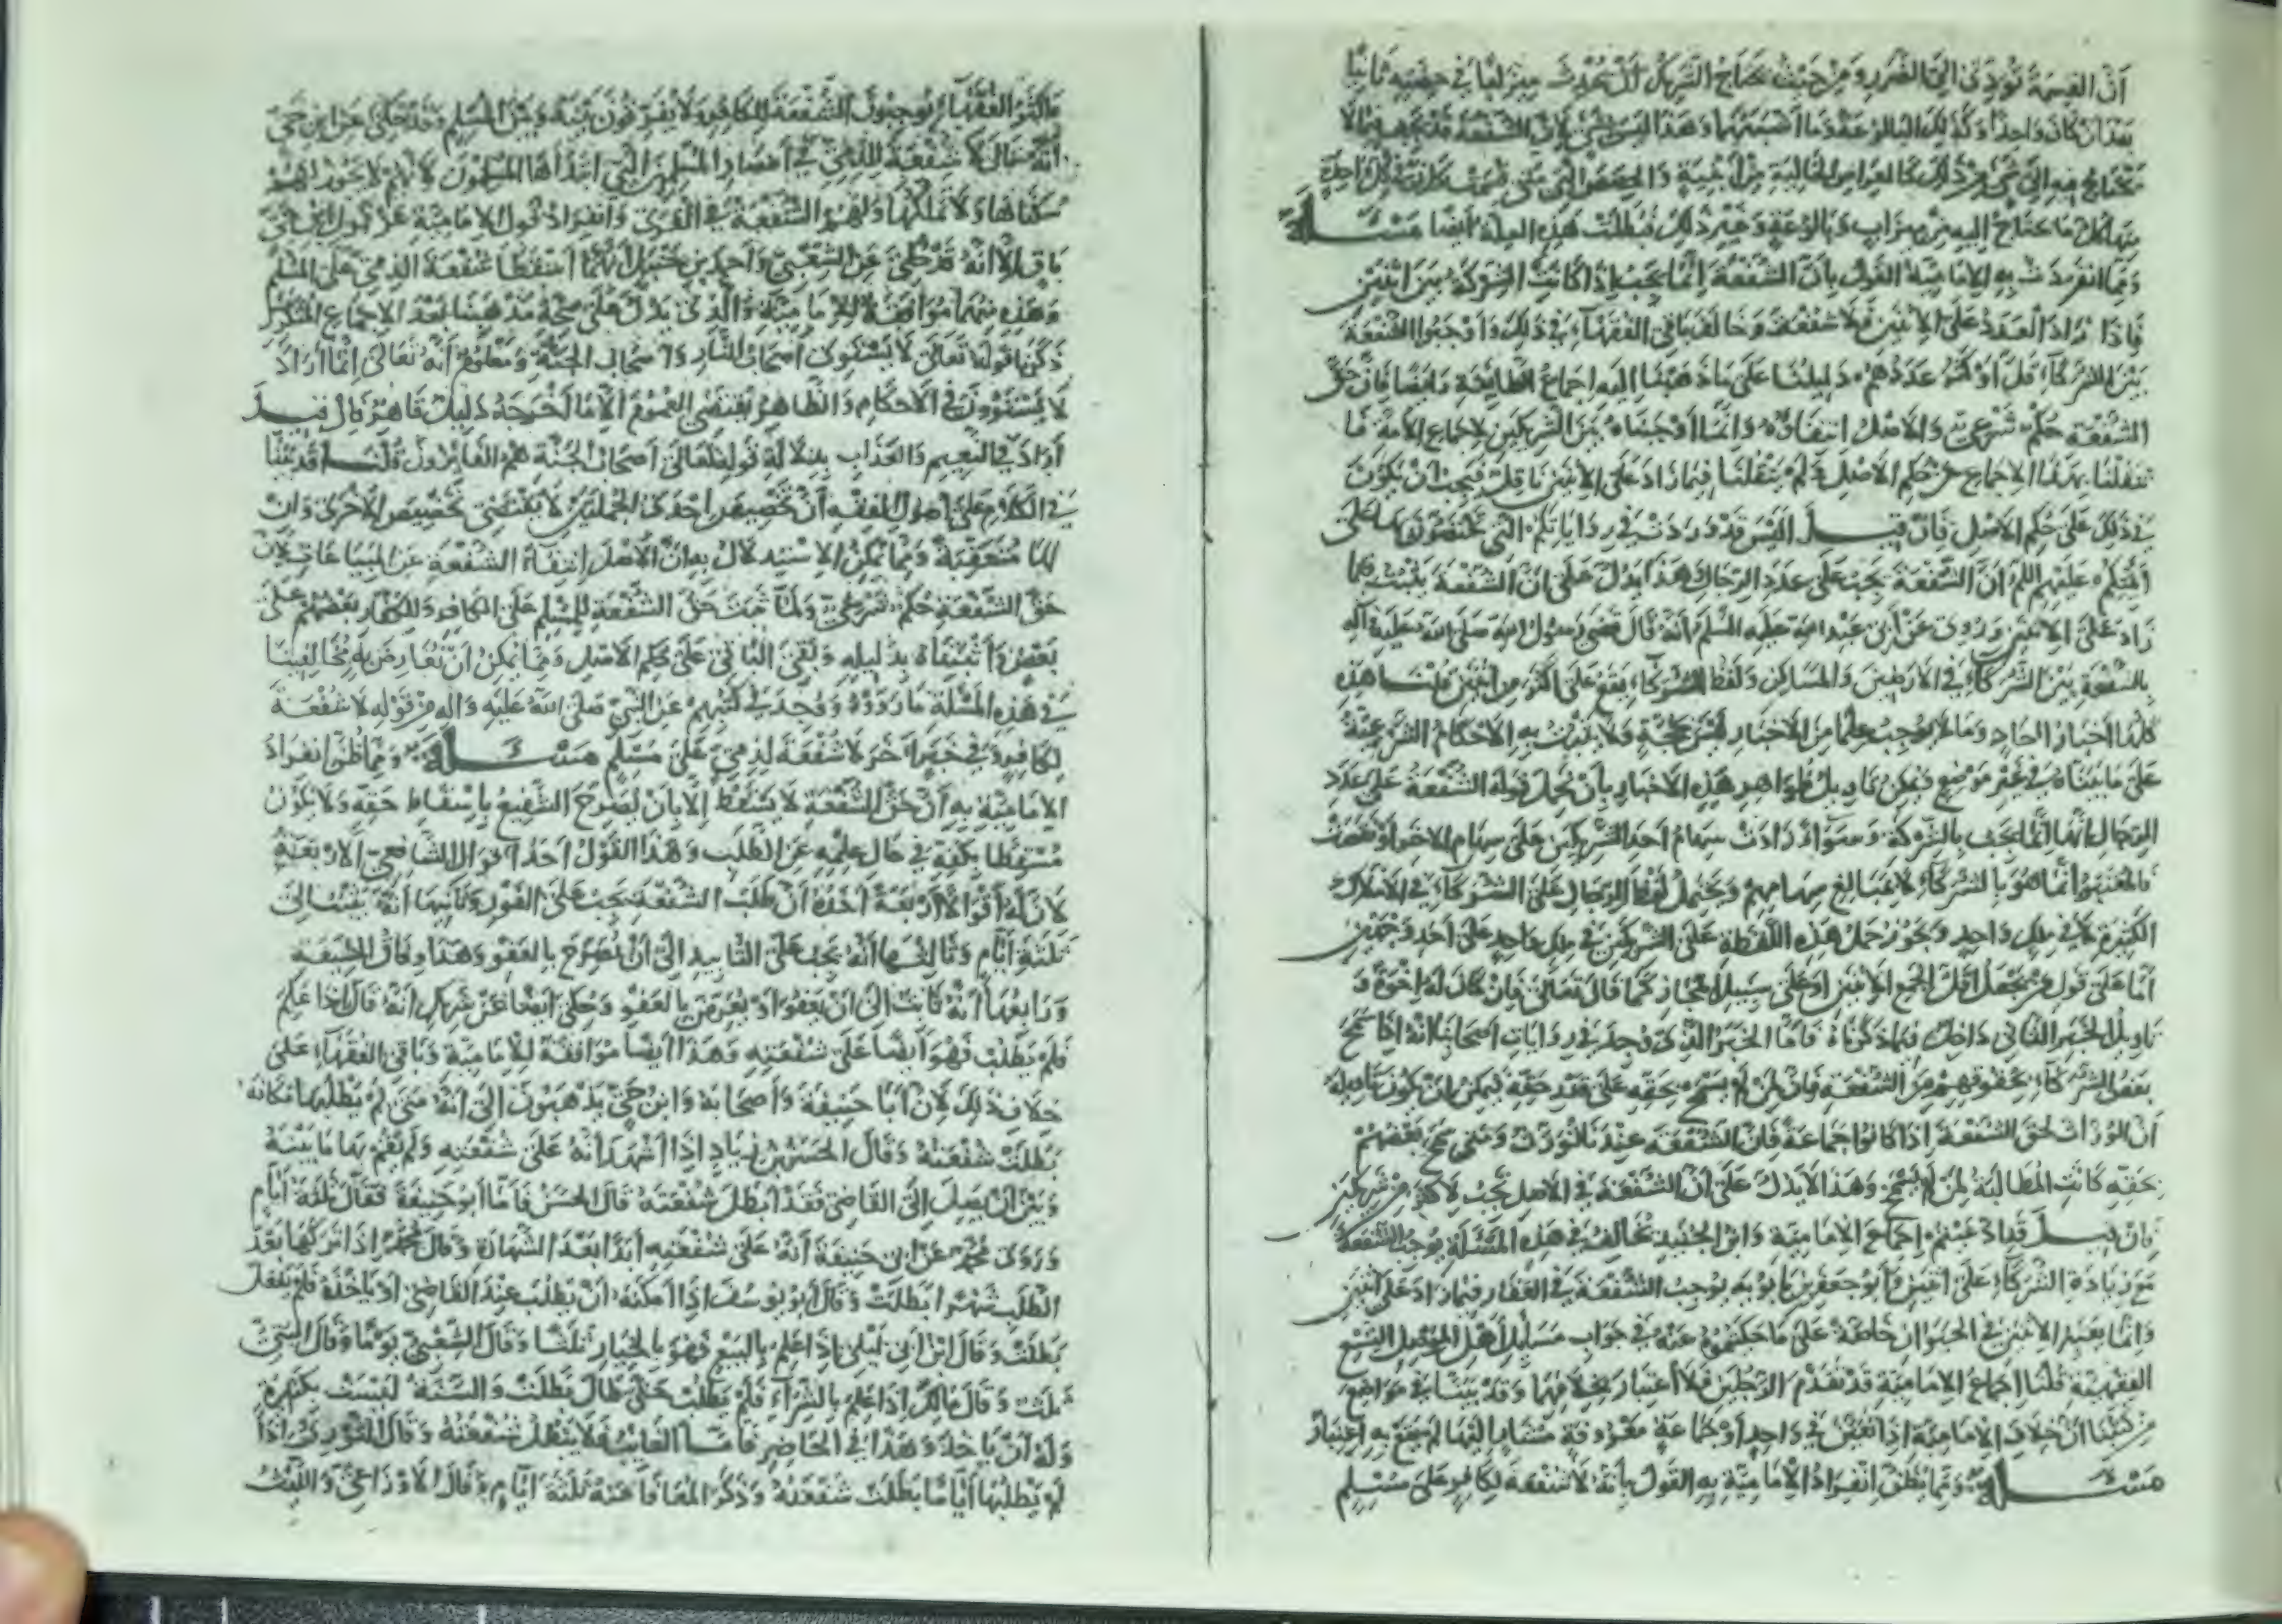 أن القسمة تؤدي الى الضرر ومن حيث يحتاج الشريك أن يحدث ميزابا في حصته ثانيا
بعد ان كان واحدا وكذلك البالوعة وما أشبهها وهذا ليس بشئ لان الشفعة قد تجب فيما لا
يحتاج فيه الى شئ من ذلك كالعراص الخالية من الابنية والحصص التي متى قسمت كان في كل واحد
منها كل ما يحتاج اليه من ميزاب وبالوعة وغير ذلك فبطلت هذه العلة أيضا مسئلة
ومما انفردت به الامامية القول بأن الشفعة إنما تجب إذا كانت الشركة بين اثنين
فإذا زاد العدد على الاثنين فلا شفعة وخالف باقي الفقهاء في ذلك وأوجبوا الشفعة
بين الشركاء قل أو كثر عددهم دليلنا على ما ذهبنا إليه اجماع الطائفة وأيضا فإن حق
الشفعة حكم شرعي والاصل انتفاؤه وانما أوجبناه بين الشريكين لاجماع الأمة فا
نتقلنا بهذا الاجماع عن حكم الاصل ولم ينقلنا فيما زاد على الاثنين ناقل فيجب أن يكون
في ذلك على حكم الاصل فإن قيل أليس قد وردت في رواياتكم التي تختصون بها عن
أئمتكم عليهم السلم أن الشفعة تجب على عدد الرجال وهذا يدل على ان الشفعة يثبت فيما
زاد على الاثنين وروى عن أبي عبد الله عليه السلم أنه قال قضى رسول الله صلى الله عليه وآله
بالشفعة بين الشركاء في الارضين والمساكن ولفظ الشركاء يقع على أكثر من اثنين قلنا هذه
كلها أخبار احاد وما لا يوجب علما من الاخبار ليس بحجة ولا يثبت به الاحكام الشرعية
على ما بيناه في غير موضع ويمكن تاويل ظواهر هذه الاخبار بأن يحمل قوله الشفعة على عدد
الرجال أنها إنما تجب بالشركة وسواء زادت سهام أحد الشريكين على سهام الاخر أو نقصت
فالمعتبر انما هو بالشركاء لا بمبالغ سهامهم ويحتمل لفظ الرجال على الشركاء في الاملاك
الكثيرة لا في ملك واحد ويجوز حمل هذه اللفظة على الشريكين في ملك واحد على أحد وجهين
أما على قول من يجعل أقل الجمع الاثنين أو على سبيل المجاز كما قال تعالى فإن كان له إخوة و
تاويل الخبر الثاني داخل فيما ذكرناه فأما الخبر الذي وجد في روايات اصحابنا انه إذا سمح
بعض الشركاء بحقوقهم من الشفعة فإن لمن لم يسمح بحقه على قدر حقه فيمكن ان يكون تاويله
أن الوراث لحق الشفعة إذا كانوا جماعة فإن الشفعة عندنا تورث ومتى سمح بعضهم
بحقه كانت المطالبة لمن لم يسمح وهذا لا يدل على أن الشفعة في الاصل تجب لاكثر من شريكين
فإن قيل قد ادعيتم اجماع الامامية وابن الجنيد يخالف في هذه المسئلة ويوجب الشفعة
مع زيادة الشركاء على اثنين وأبو جعفر بن بابويه يوجب الشفعة في العقار فيما زاد على اثنين
وانما يعتبر الاثنين في الحيوان خاصة على ما حكيتموه عنه في جواب مسائل أهل الموصل التسع
الفقهية قلنا اجماع الامامية قد تقدم الرجلين فلا اعتبار بخلافهما وقد بينا في مواضع
من كتبنا ان خلاف الامامية إذا تعين في واحد أو جماعة معروفة مشار إليها لم يقع به اعتبار
مسئلة ومما يظن انفراد الامامية به القول بأنه لا شفعة لكافر على مسلم
وأكثر الفقهاء يوجبون الشفعة للكافر ولا يفرقون بينه وبين المسلم وقد حكى عن ابن حى
أنه قال لا شفعة للذمي في أمصار المسلمين التي ابتدأها المسلمون لانهم لا يجوز لهم
سكناها ولا تملكها ولهم الشفعة في القرى وانفراد قول الامامية عن قول ابن حى
باق لا أنه قد حكى عن الشعبي وأحمد بن حنبل أنهما أسقطا شفعة الذمي على المسلم
وهذه منهما موافقة للامامية والذي يدل على صحة مذهبنا بعد الاجماع المتكرر
ذكره قوله تعالى لا يستوى أصحاب النار وأصحاب الجنة ومعلوم أنه تعالى إنما أراد
لا يستوون في الاحكام والظاهر يقتضي العموم الا ما أخرجه دليل قاهر فإن قيل
أراد في النعيم والعذاب بدلالة قوله تعالى أصحاب الجنة هم الفائزون قلنا قد بينا
في الكلام على أصول الفقه أن تخصيص إحدى الجملتين لا يقتضي تخصيص الاخرى وان
كانت متعقبة ومما يمكن الاستدلال به ان الاصل انتفاء الشفعة عن المبيعات لان
حق الشفعة حكم شرعي ولما ثبت حق الشفعة للمسلم على الكافر وللكفار بعضهم على
بعض أثبتناه بدليله وبقي الباقي على حكم الاصل ومما يمكن ان نعارض به مخالفينا
في هذه المسئلة ما رووه ووجد في كتبهم عن النبي صلى الله عليه وآله من قوله لا شفعة
لكافر وفي خبر آخر لا شفعة لذمي على مسلم مسئلة ومما ظن انفراد
الامامية به أن حق الشفعة لا يسقط إلا بان يصرح الشفيع بإسقاط حقه ولا يكون
مسقطا بكفه في حال علمه عن الطلب وهذا القول أحد أقوال الشافعي الاربعة
لان له أقوالا أربعة أحدها أن طلب الشفعة يجب على الفور وثانيها أنه يثبت الى
ثلثة أيام وثالثها أنه يجب على التابيد إلى ان يصرح بالعفو وهذا وفاق الشيعة
ورابعها أنه ثابت الى ان يعفو أو يعرض بالعفو وحكى أيضا عن شريك أنه قال إذا علم
فلم يطلب فهو أيضا على شفعته وهذا أيضا موافقة للامامية وباقي الفقهاء على
خلاف ذلك لان أبا حنيفة وأصحابه وابن حى يذهبون إلى أنه متى لم يطلبها مكانه
بطلت شفعته وقال الحسن بن زياد إذا أشهد انه على شفعته ولم يقم بها ما بينه
وبين أن يصل إلى القاضي فقد ابطل شفعته قال الحسن فأما أبو حنيفة فقال ثلثة أيام
وروى محمد عن أبي حنيفة أنه على شفعته أبدا بعد الشهادة وقال محمد إذا تركها بعد
الطلب شهرا بطلت وقال أبو يوسف إذا أمكنه أن يطلب عند القاضي أو ياخذه فلم يفعل
بطلت وقال ابن أبي ليلى إذا علم بالبيع فهو بالخيار ثلثا وقال الشعبي يوما وقال البتي
ثلث وقال مالك إذا علم بالشراء فلم يطلب حتى طال بطلت والسنة ليست بكثيرة
وله أن ياخذ وهذا في الحاضر فأما الغائب فلا يبطل شفعته وقال الثوري إذا
لم يطلبها أياما بطلت شفعته وذكر المعافا عنه ثلثة أيام وقال الاوزاعي والليث